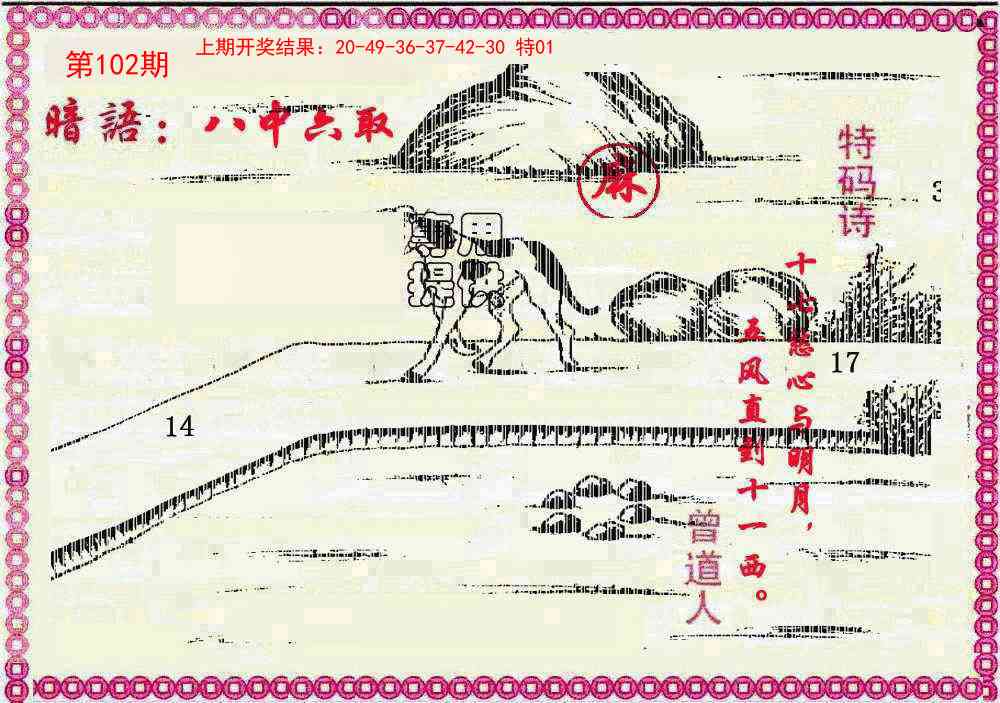 上期开奖结果：20-49-36-37-42-30 特01
第102期
暗語：八中六取
麻
特码诗
3
十心慈心与明月，
五风直到十一西。
17
14
曾道人